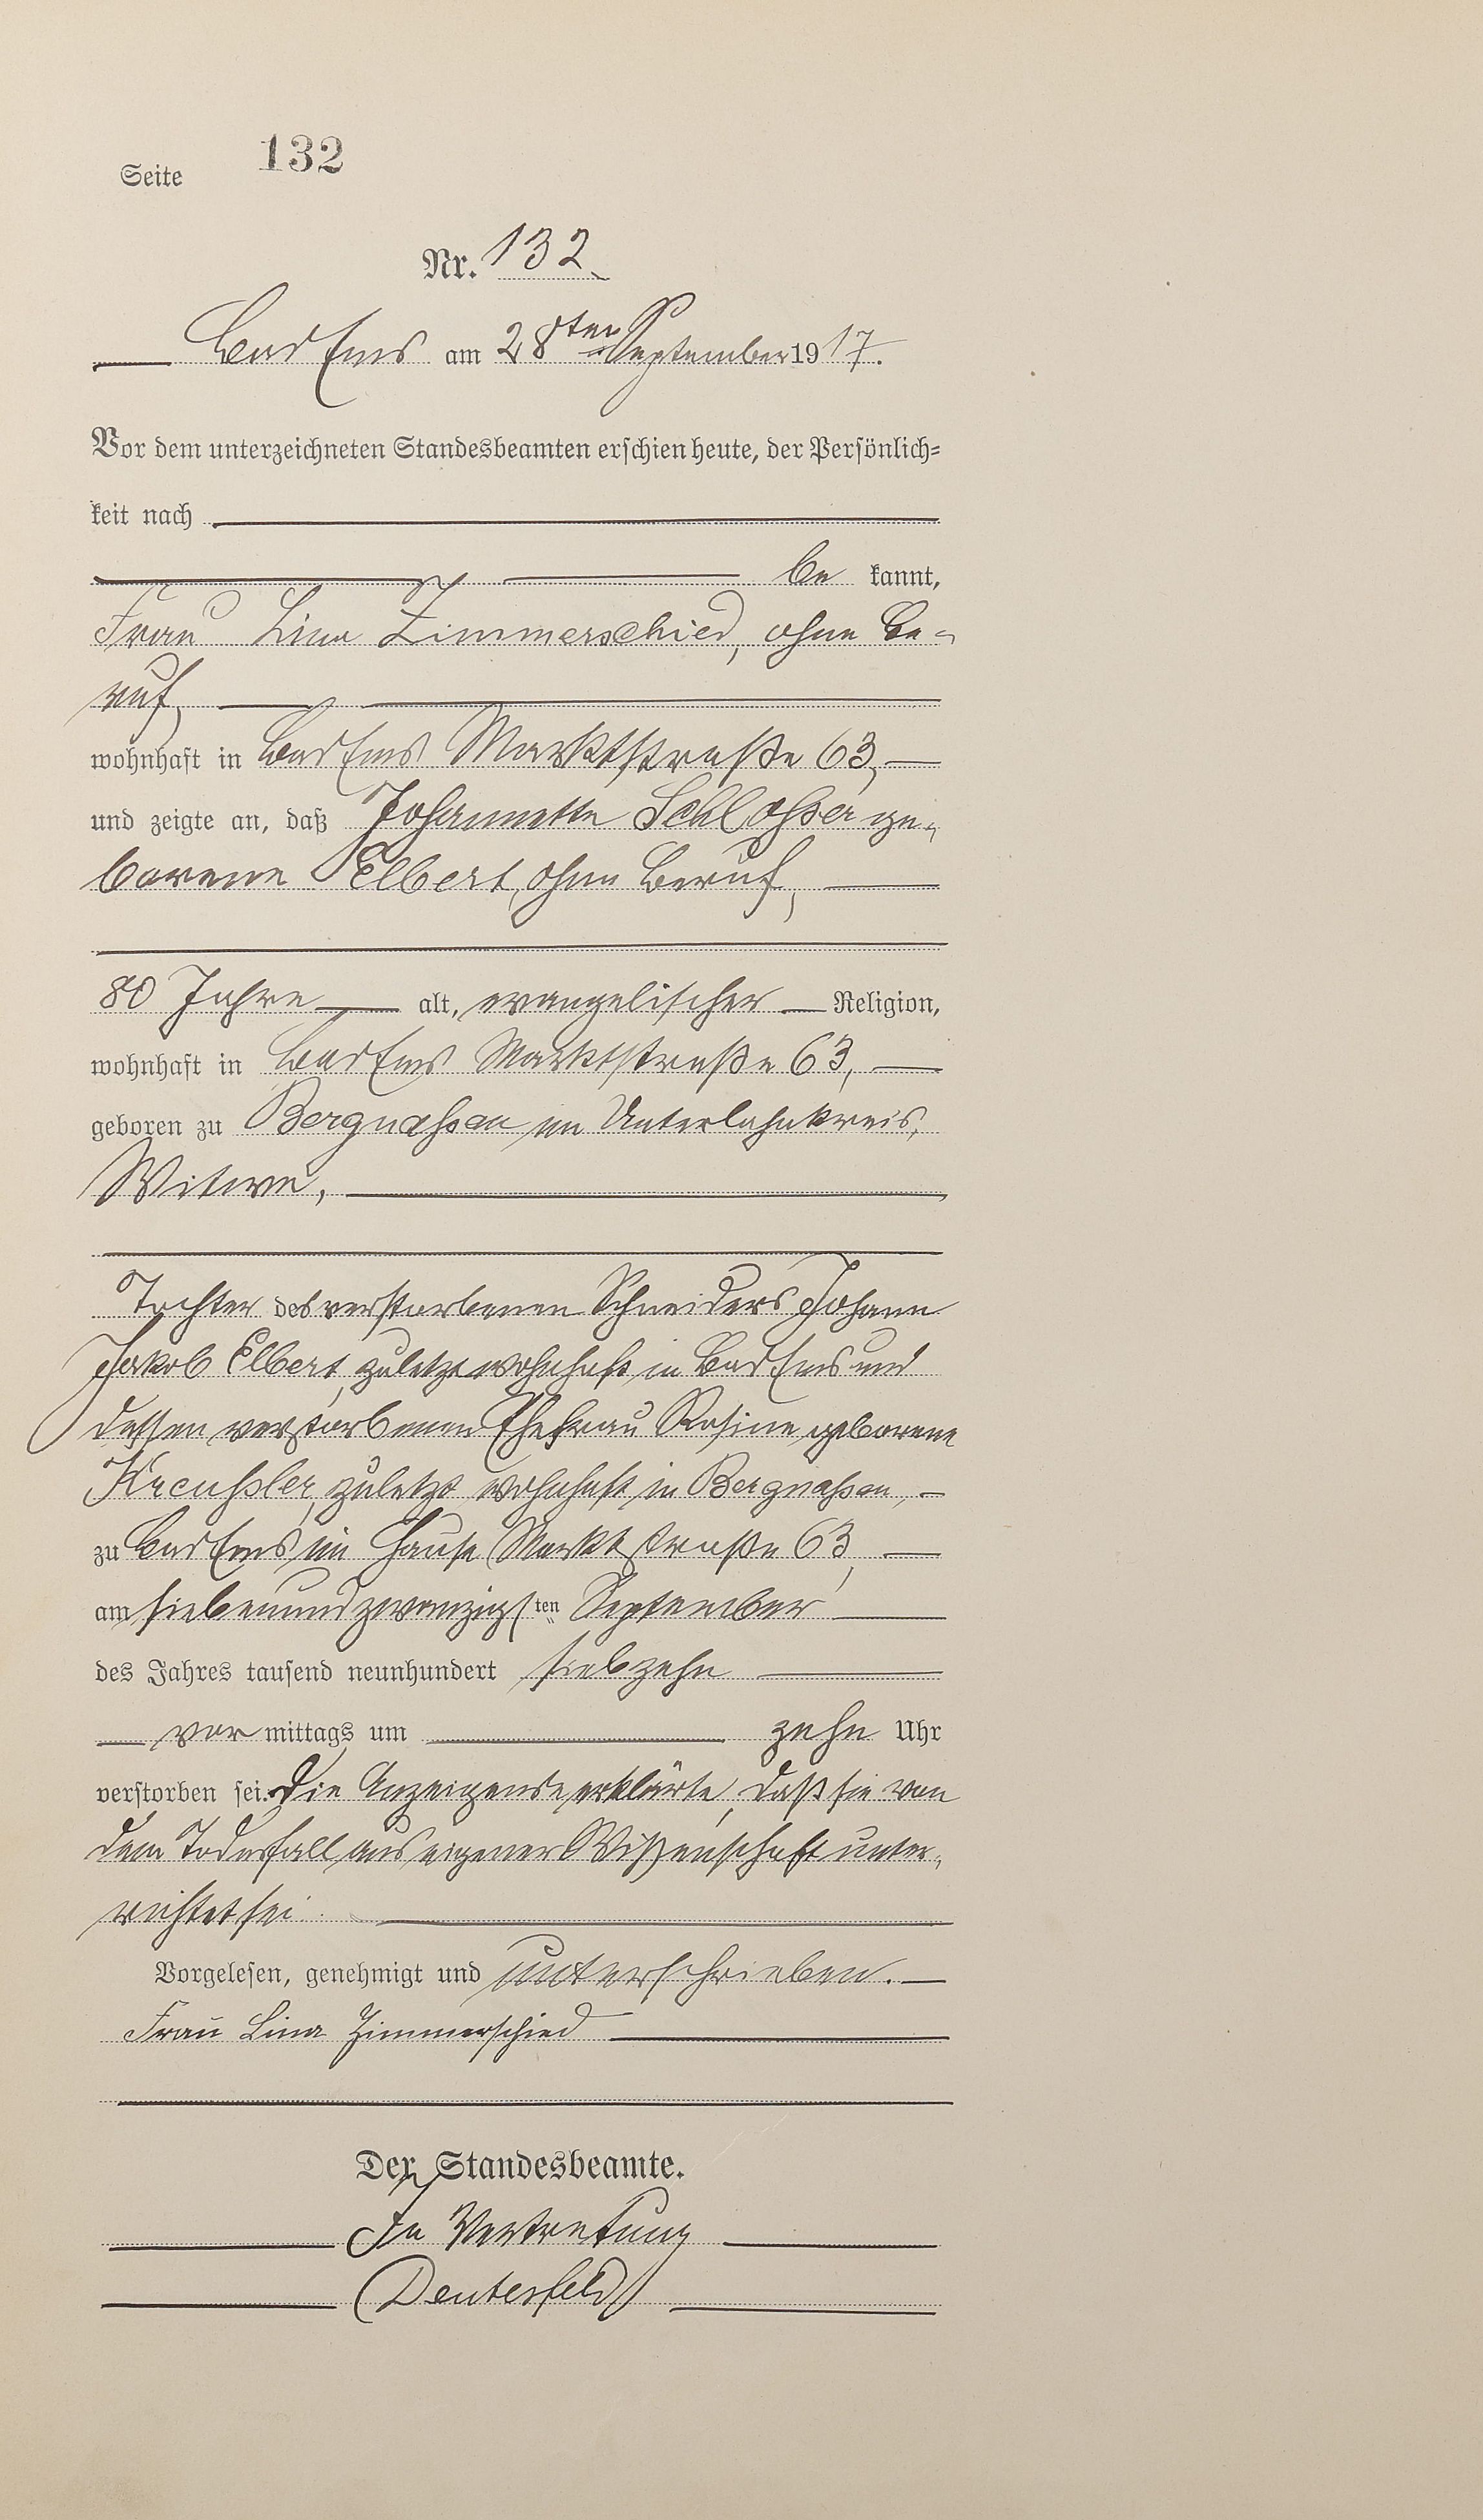 Seite 132
Nr. 132
Bad Ems am 28ten September 1917.
Vor dem unterzeichneten Standesbeamten erschien heute, der Persönlich=
keit nach
be kannt,
Frau Lina Zimmerschied, ohne Be=
ruf,
wohnhaft in Bad Ems Marktstraße 63,
und zeigte an, daß Johannette Schlosser ge=
borene Elbert, ohne Beruf,
80 Jahre alt, evangelischer Religion,
wohnhaft in Bad Ems Marktstraße 63,
geboren zu Bergnassau im Unterlahnkreis,
Witwe,
Tochter des verstorbenen Schneiders Johann
Jakob Elbert, zuletzt wohnhaft in Bad Ems und
dessen verstorbenen Ehefrau Rosine, geborene
Kreußler, zuletzt wohnhaft in Bergnassau,
zu Bad Ems im Hause Marktstraße 63,
am siebenundzwanzigsten September
des Jahres tausend neunhundert siebzehn
vor mittags um zehn Uhr
verstorben sei. Die Anzeigende erklärte, daß sie von
dem Todesfall aus eigener Wissenschaft unter=
richtet sei.
Vorgelesen, genehmigt und unterschrieben.
Frau Lina Zimmerschied
Der Standesbeamte.
In Vertretung
(Deutesfeld)